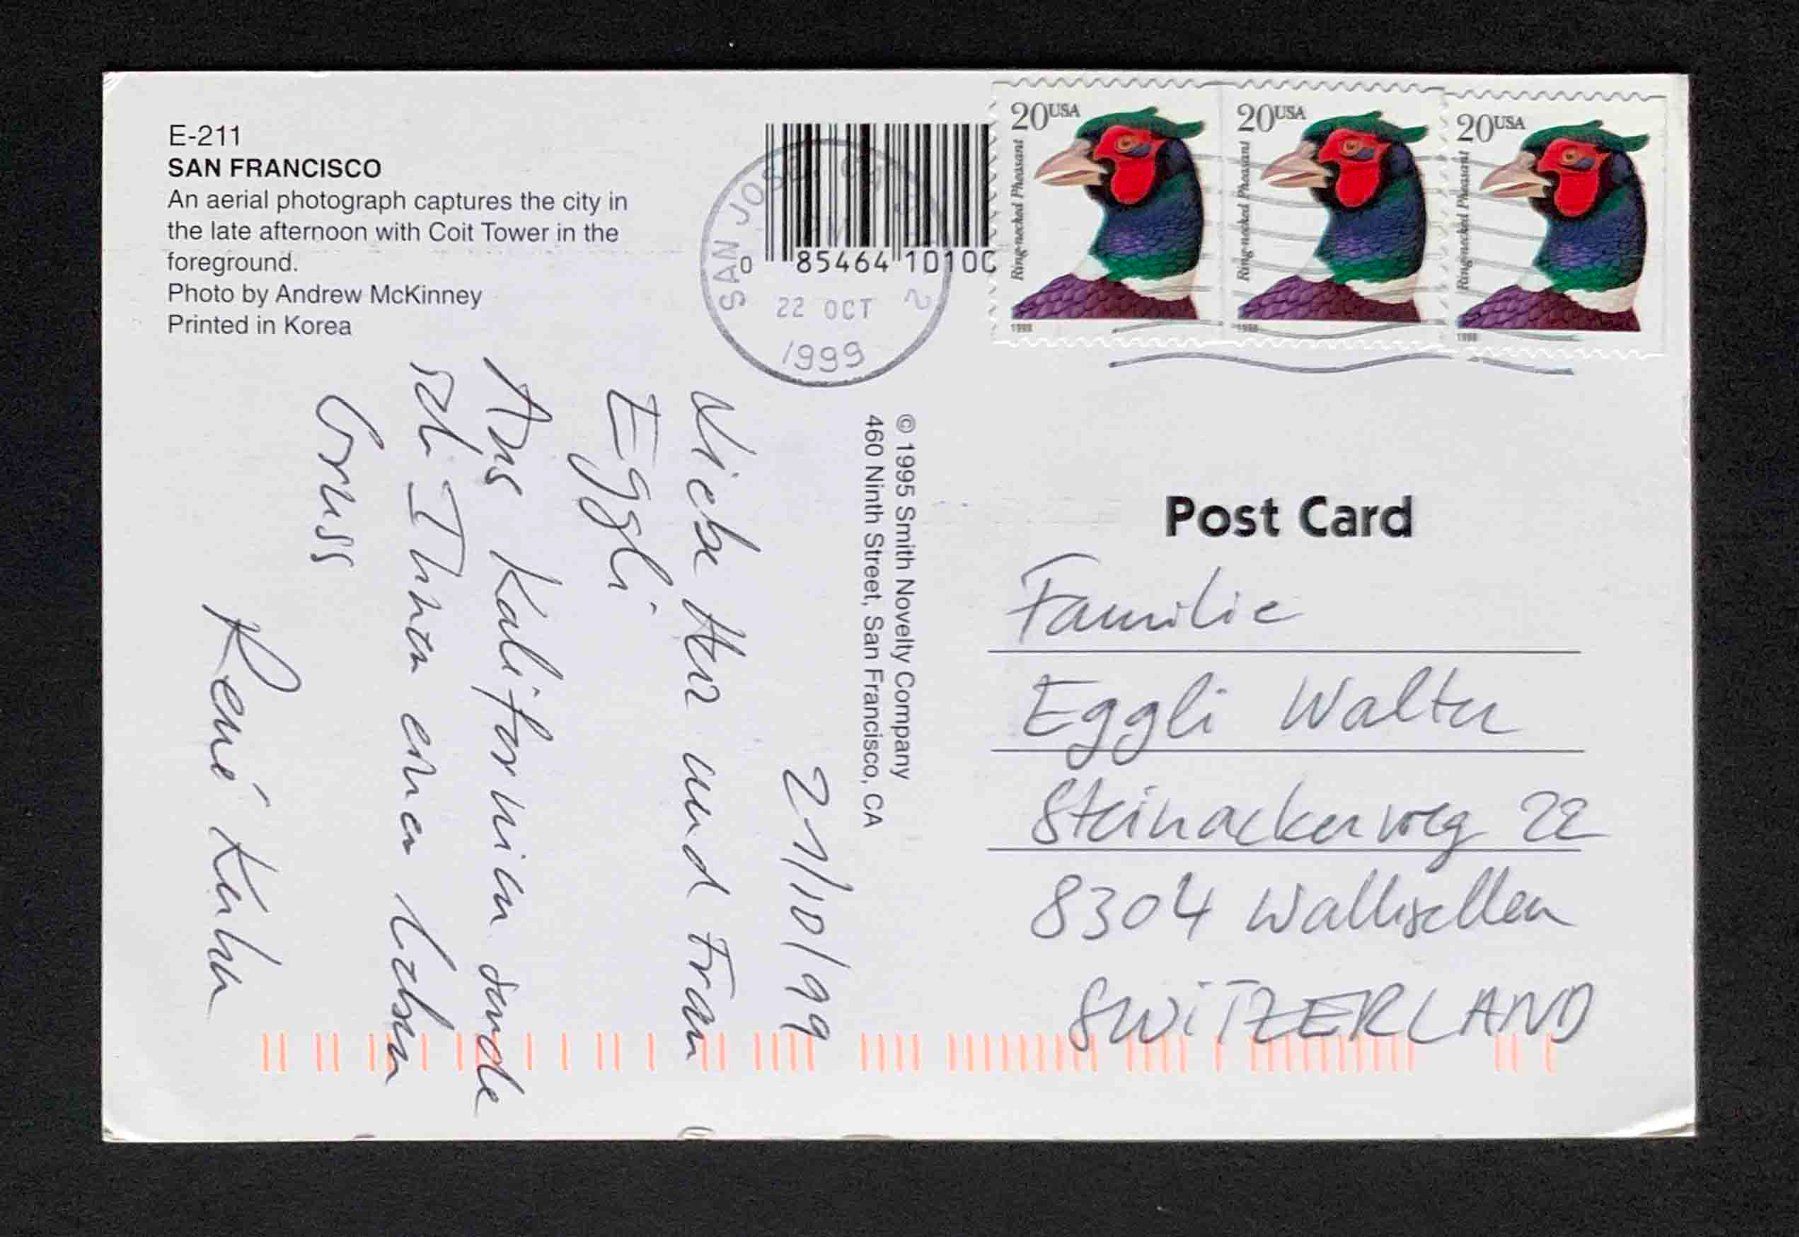 E-211
SAN FRANCISCO
An aerial photograph captures the city in
the late afternoon with Coit Tower in the
foreground.
Photo by Andrew McKinney
Printed in Korea
0 85464 10100
SAN JOSE CA
22 OCT
1999
20USA
Ring-necked Pheasant
1998
20USA
Ring-necked Pheasant
1998
20USA
Ring-necked Pheasant
1998
© 1995 Smith Novelty Company
460 Ninth Street, San Francisco, CA
21/10/99
Liebe Herr und Frau
Eggli
Aus Kalifornien sende
ich Ihnen einen lieben
Gruss
René
Post Card
Familie
Eggli Walter
Steinackerweg 22
8304 Wallisellen
SWITZERLAND